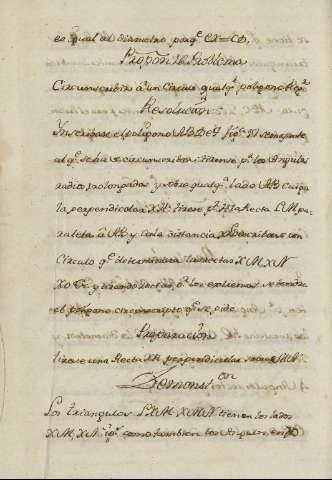 es igual al diametro porqe CE=CD.
Propon Problema
Circunscribir à un Circulo qualqa. poligono
Resolucion
Inscribase el poligono semejante
al qe. se ha de circunscribir: tirense pr. los Angulos
radios prolongados y sobre qualqa. lado AB caiga
la perpendicular XH tirese pr. H la Recta LM pa-
ralela à AB y con la distancia describase un
Circulo qe. determinara las rectas XM XN
XO &c y tirando rectas pr. los extremos se tendra
el poligono circunscripto qe. se pide
Preparacion
tirese una Recta XR perpendicular sobre MN
Demonson
Los triangulos LXM XMN tienen los lados
XM XN igs. como tambien los Angulos